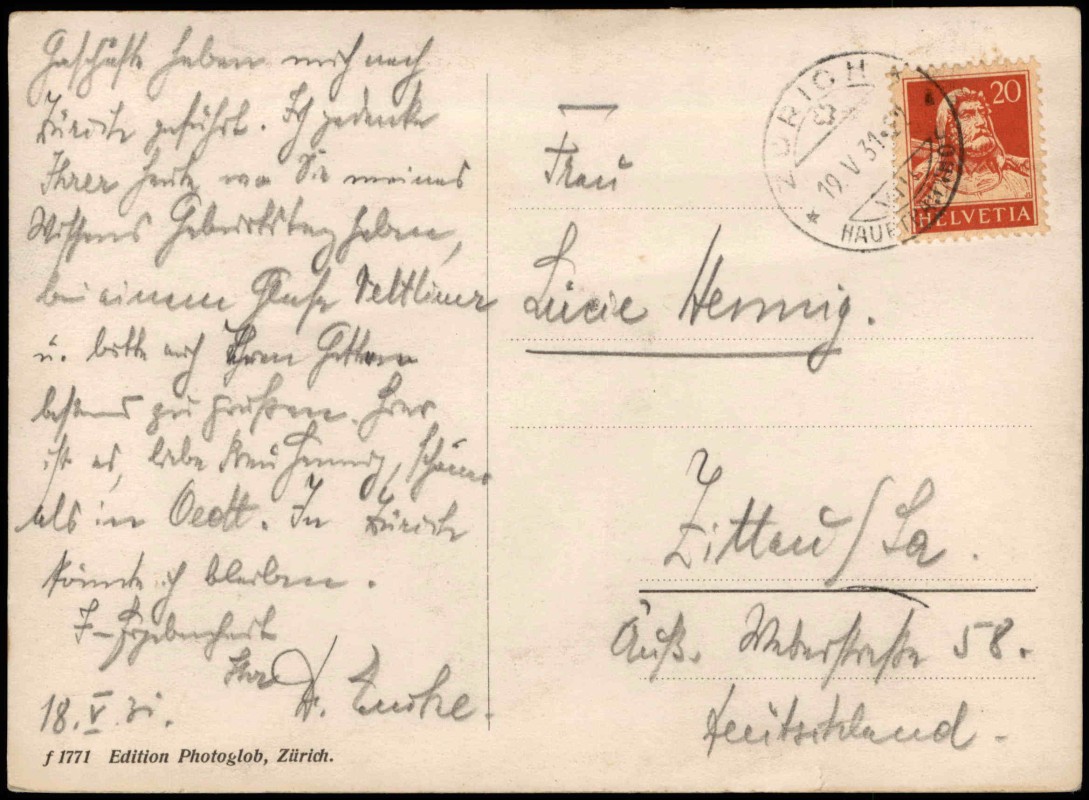 Geschäfte haben mich nach
Zürich geführt. Ich gedenke
Ihrer heute, wo Sie meines
Wissens Geburtstag haben,
bei einem Glase Veltliner
u. bitte auch Ihren Gatten
bestens zu grüßen. Hier
ist es, liebe Frau Hennig, schöner
als in Oedt. In Zürich
könnte ich bleiben.
Ergebenheit
Ihr
18. V. 31.
f 1771 Edition Photoglob, Zürich.
ZÜRICH
19. V. 31
HAUPTBAHNHOF
20
HELVETIA
Frau
Lucie Hennig.
Zittau/Sa.
Äuß. Weberstraße 58.
Deutschland.